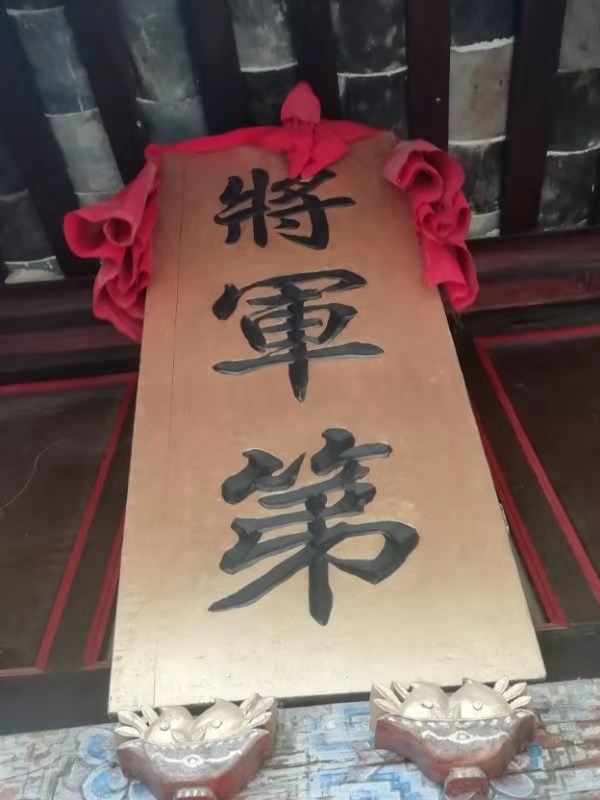 將軍第